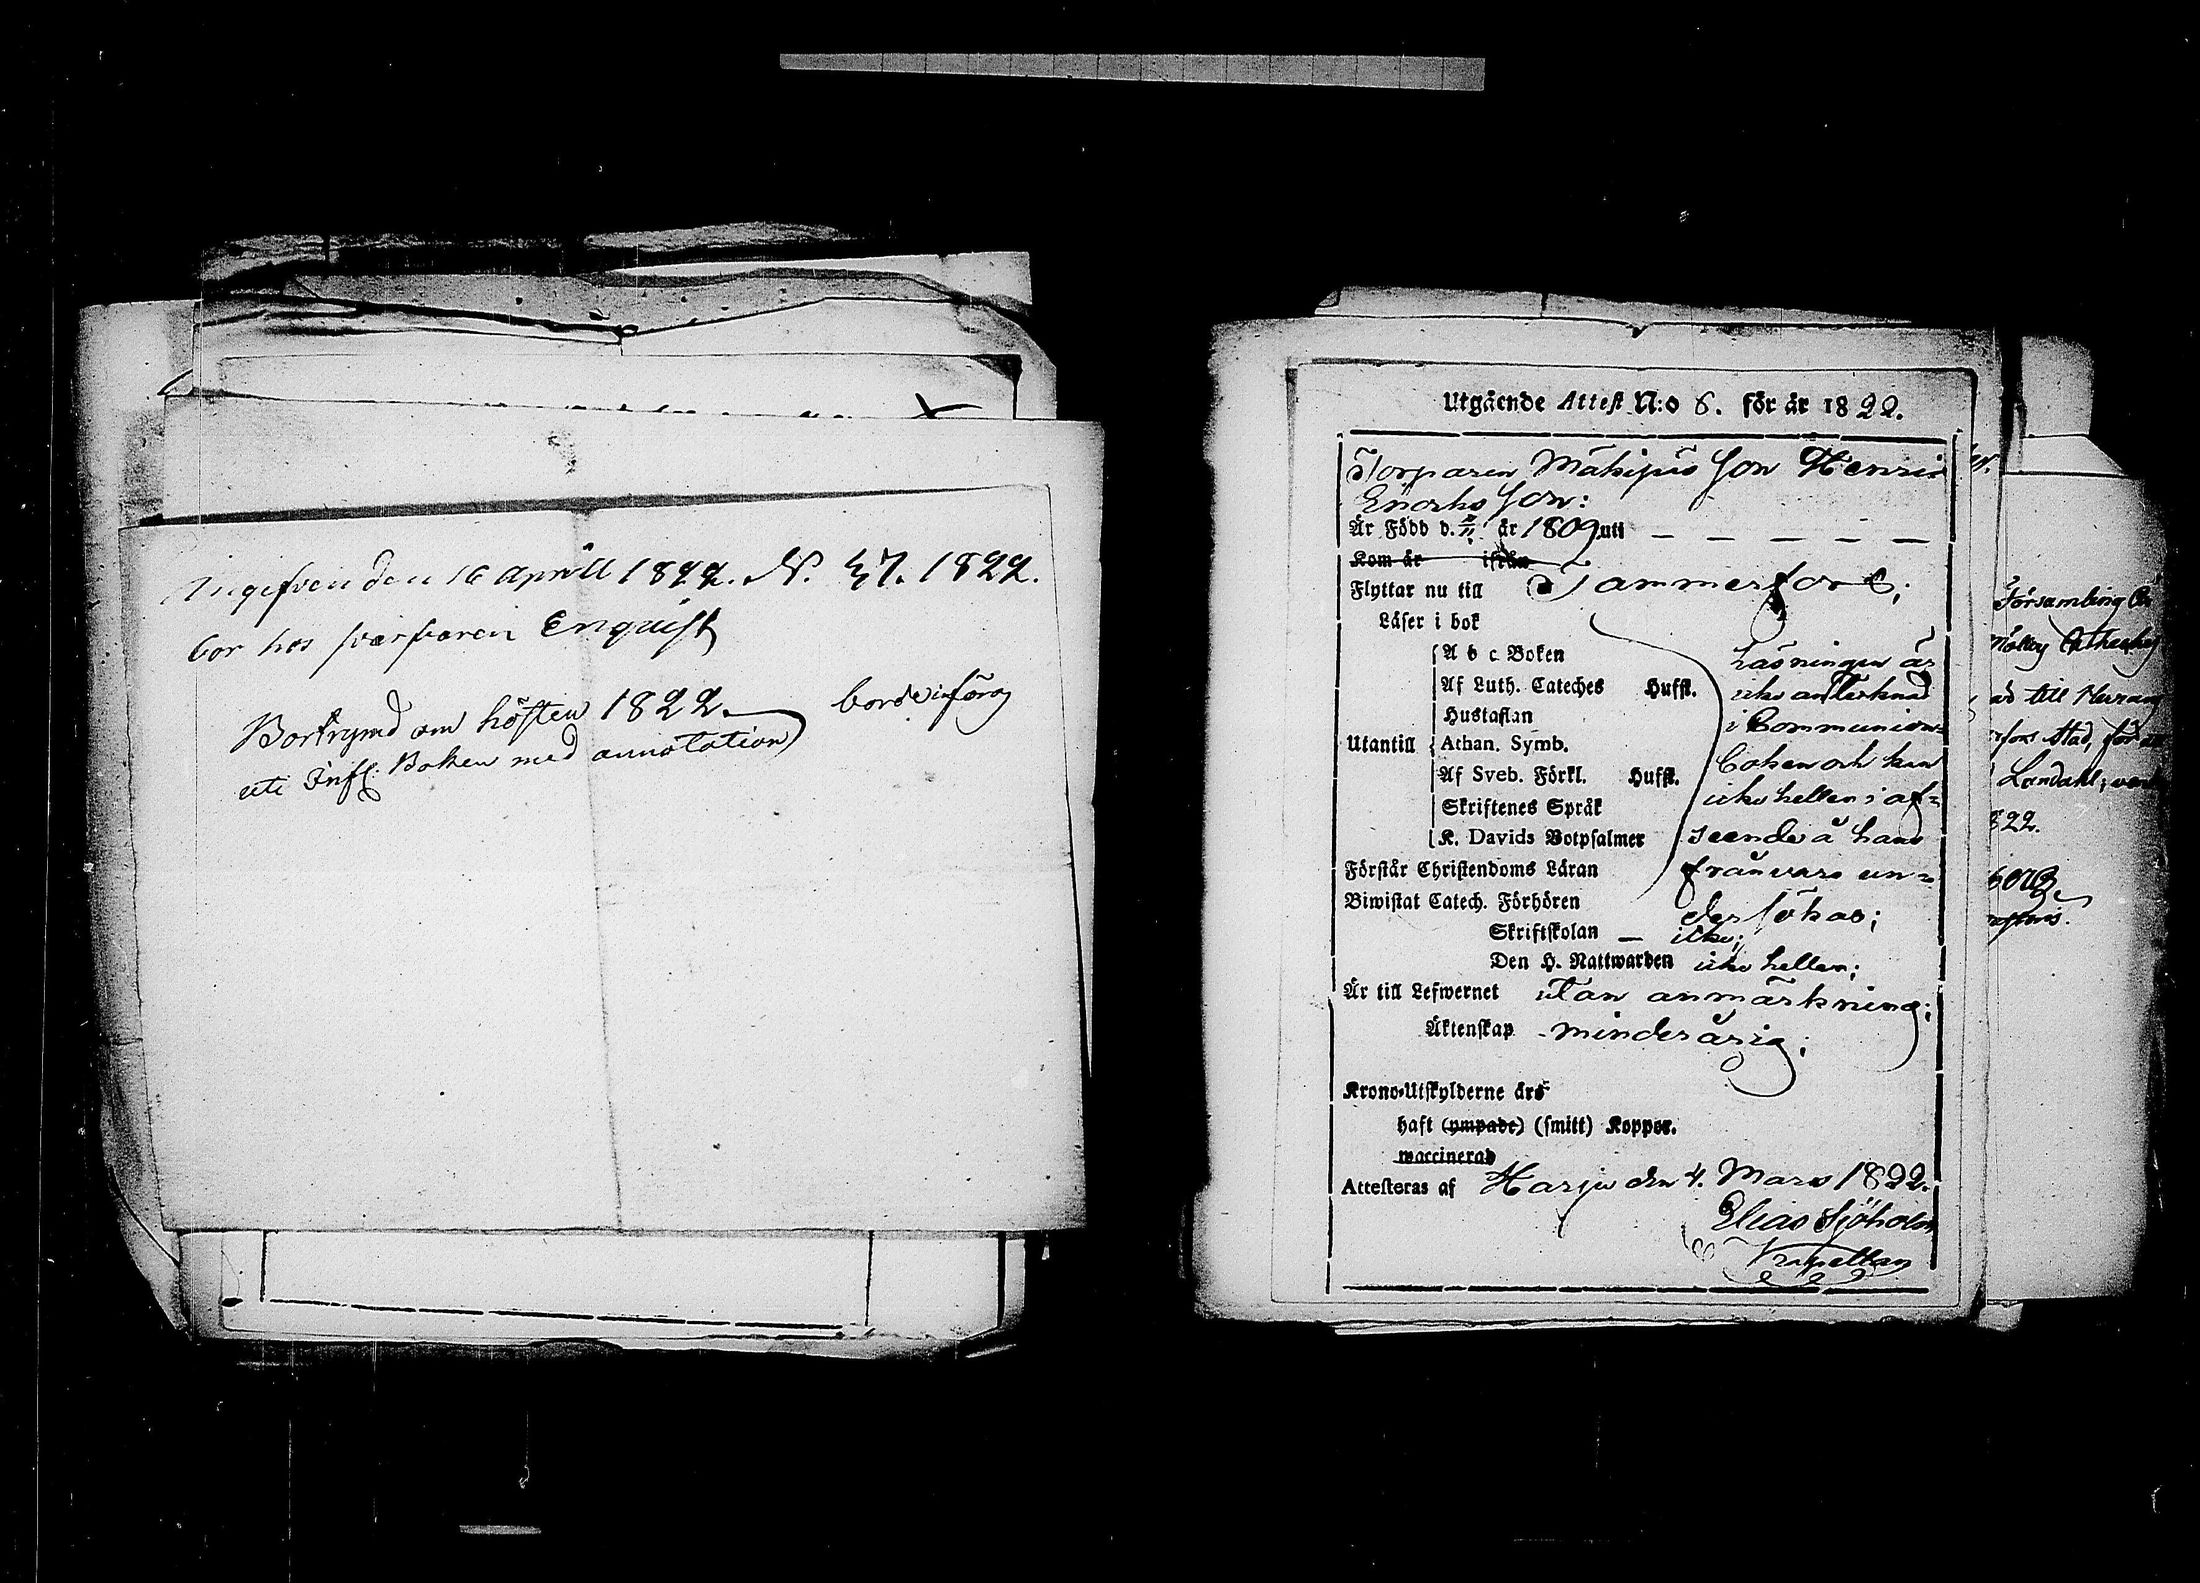 Ingifven den 16 Aprill 1822. N. 37. 1822.
bor hos svarfvaren Enquist
Bortrymd om hösten 1822. borde införas
uti Infl. Boken med annotation
Utgående Attest N:o 6. för år 1822.
Torparen Mäkipää son Henric
Enochs son:
Är Född d. år 1809 uti — — — — —
Kom år ifrån
Flyttar nu till Tammerfors;
Läser i bok
A b c Boken
Af Luth. Cateches Hufst.
Hustaflan
Utantill Athan. Symb.
Af Sveb. Förkl. Hufst.
Skriftenes Språk
K. Davids Botpsalmer
Läsningen är
icke antecknad
i Communion-
boken och kan
icke heller i af-
seende å hans
frånvaro un-
dersökas;
Förstår Christendoms Läran
Biwistat Catech. Förhören
Skriftskolan — icke;
Den H. Nattwarden icke heller;
Är till Lefwernet utan anmärkning;
Äktenskap minderårig;
Krono-Utskylderne års
haft (ympade) (smitt) Koppor.
waccinerad
Attesteras af Harju den 4. Mars 1822.
Elias Sjöholm
Kapellan
Församling
till
stad, för
Landahl;
822.